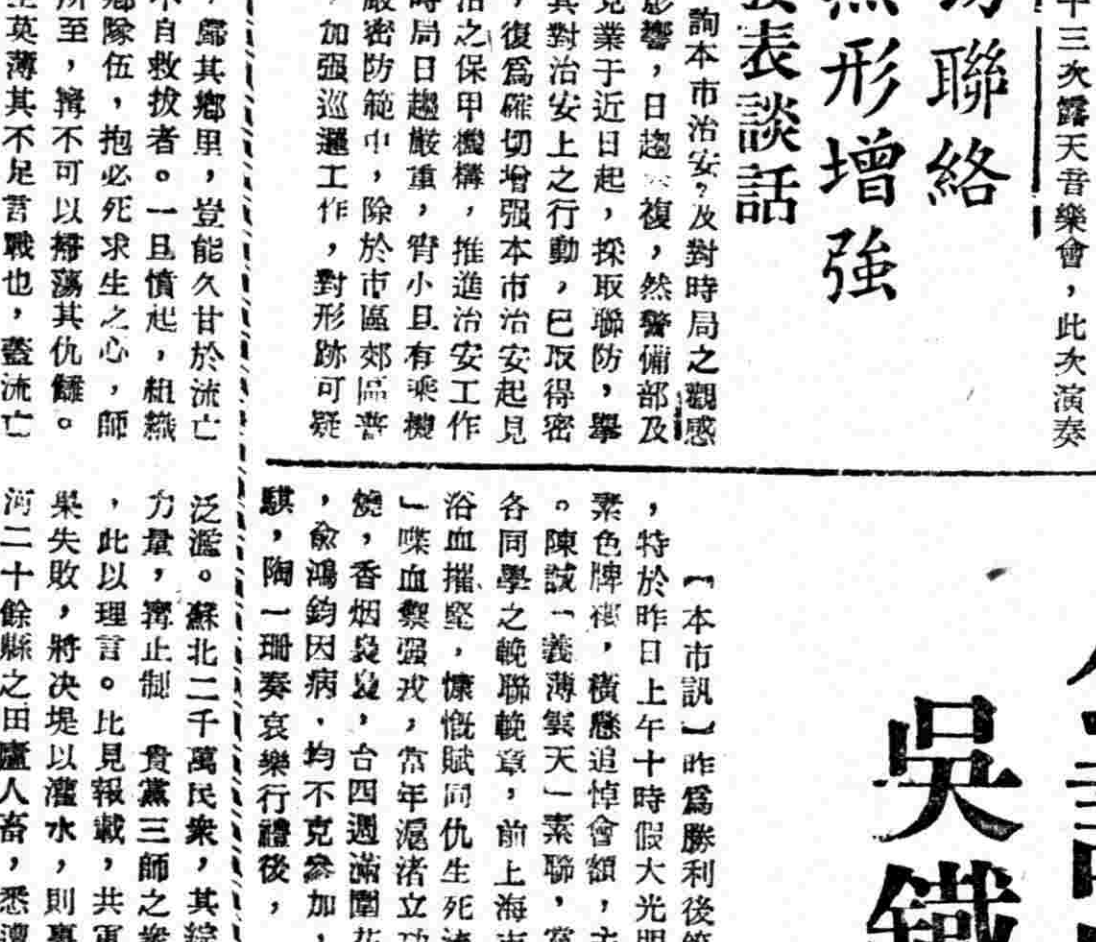 年三次露天音樂會，此次演奏
聯絡
形增強
表談話
詢本市治安？及對時局之觀感
影響，日趨複，然警備部及
克業于近日起，採取聯防，舉
其對治安上之行動，已取得密
，復爲確切增强本市治安起見
治之保甲機構，推進治安工作
時局日趨嚴重，宵小且有乘機
嚴密防範中，除於市區郊區普
加强巡邏工作，對形跡可疑
，歸其鄉里，豈能久甘於流亡
不自救拔者。一旦憤起，組織
鄉隊伍，抱必死求生之心，師
所至，將不可以掃蕩其仇讎。
英薄其不足言戰也，蓋流亡
吳鐵
【本市訊】昨爲勝利後第
，特於昨日上午十時假大光明
素色牌，橫懸追悼會額，主
。陳誠「義薄雲天」素聯，當
各同學之輓聯輓章，前上海市
浴血摧堅，慷慨賦同仇生死
」喋血禦强戎，當年滬渚立功
燒，香烟裊裊，台四週滿圍花
，俞鴻鈞因病，均不克參加，
騏，陶一珊奏哀樂行禮後，
泛濫。蘇北二千萬民衆，其綜
力量，寗止制　貴黨三師之衆
，此以理言。比見報載，共軍
果失敗，將决堤以灌水，則事
河二十餘縣之田廬人畜，悉遭